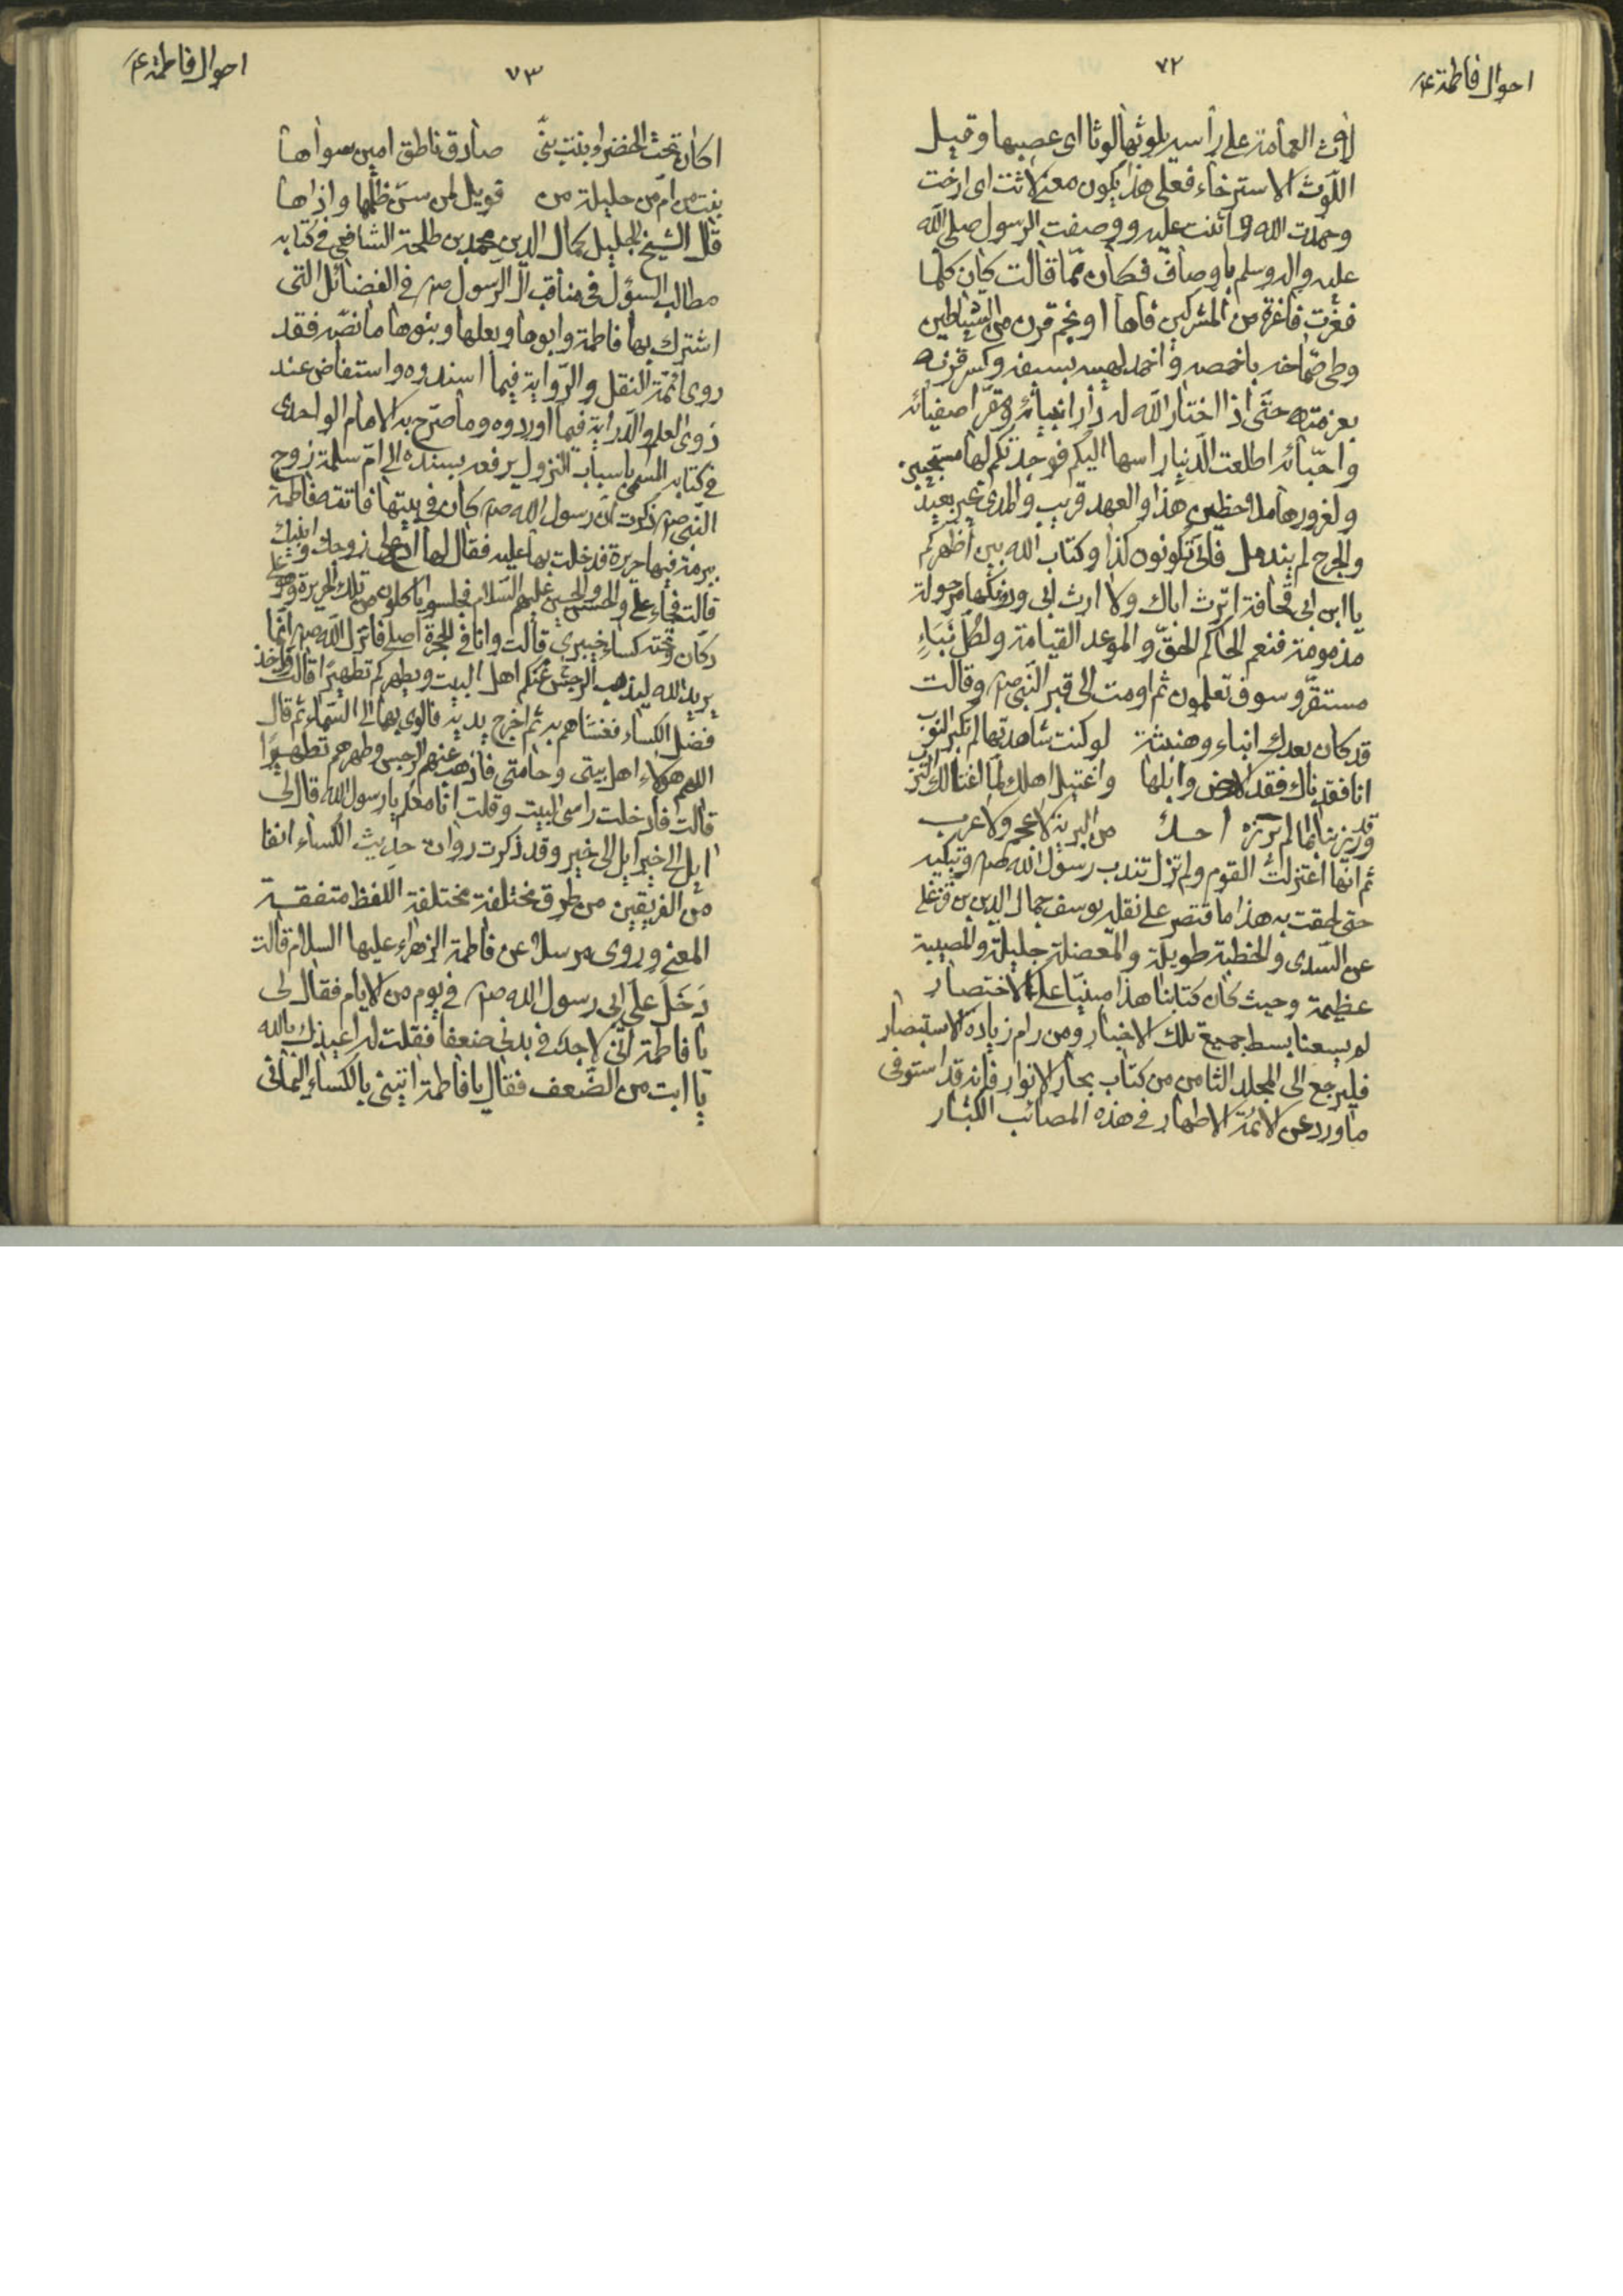 احوال فاطمة ع
٧٢
لاث العمامة على رأسه يلوثها لوثا اى عصبها وقيل
اللوث الاسترخاء فعلى هذا يكون معنى لاثت اى ارخت
وحمدت الله واثنت عليه ووصفت الرسول صلى الله
عليه واله وسلم باوصاف فكان مما قالت كان كلما
فغرت فاغرة من المشركين فاها او نجم قرن من الشياطين
وطى صماخه باخمصه واخمد لهيبه بسيفه وكسر قرنه
بعزمته حتى اذا اختار الله له دار انبيائه ومقر اصفيائه
واحبائه اطلعت الدنيا راسها اليكم فوجدتكم لها مستجيبين
ولغرورها ملاحظين هذا والعهد قريب والمدى غير بعيد
والجرح لم يندمل فانى تكونون كذا وكتاب الله بين اظهركم
يا ابن ابى قحافة اترث اباك ولا ارث ابى ودونكها مرحولة
مذمومة فنعم الحاكم الحق والموعد القيامة ولكل نباء
مستقر وسوف تعلمون ثم اومت الى قبر النبى ص وقالت
قد كان بعدك انباء وهنبثة لو كنت شاهدها لم تكبر النوب
انا فقدناك فقد الارض وابلها واغتيل اهلك لما اغتالك الترب
وقد رزينا بما لم يرزه احد من البرية لا عجم ولا عرب
ثم انها اعتزلت القوم ولم تزل تندب رسول الله ص وتبكيه
حتى لحقت به هذا ما اقتصر على نقله يوسف جمال الدين بن قزغلى
عن السدى والخطبة طويلة والمعضلة جليلة والمصيبة
عظيمة وحيث كان كتابنا هذا مبنيا على الاختصار
لم يسعنا بسط جميع تلك الاخبار ومن رام زيادة الاستبصار
فليرجع الى المجلد الثامن من كتاب بحار الانوار فانه قد استوفى
ما ورد عن الائمة الاطهار فى هذه المصائب الكبار
٧٣
احوال فاطمة ع
اكان تحت الخضراء بنت نبى صادق ناطق امين سواها
بنت من ام من حليلة من فويل لمن سن ظلمها واذاها
قال الشيخ الجليل كمال الدين محمد بن طلحة الشافعى فى كتابه
مطالب السؤل فى مناقب آل الرسول ص فى الفضائل التى
اشترك بها فاطمة وابوها وبعلها وبنوها ما نصه فقد
روى ائمة النقل والرواية فيما اسندوه واستفاض عند
ذوى العلم والدراية فيما اوردوه وما صرح به الامام الواحدى
فى كتابه المسمى باسباب النزول يرفعه بسنده الى ام سلمة زوج
النبى ص ذكرت ان رسول الله ص كان فى بيتها فاتته فاطمة
ببرمة فيها حريرة فدخلت بها عليه فقال لها ادعى زوجك وابنيك
قالت فجاء على والحسن والحسين عليهم السلام فجلسوا ياكلون من تلك الحريرة وهو على
دكان وتحته كساء خيبرى قالت وانا فى الحجرة اصلى فانزل الله ص انما
يريد الله ليذهب عنكم الرجس اهل البيت ويطهركم تطهيرا قالت واخذ
فضل الكساء فغشاهم به ثم اخرج يديه فالوى بها الى السماء ثم قال
اللهم هؤلاء اهل بيتى وحامتى فاذهب عنهم الرجس وطهرهم تطهيرا
قالت فادخلت راسى البيت وقلت انا معكم يا رسول الله قال لى
ايل الى خير ايل الى خير وقد ذكرت رواة حديث الكساء انفا
من الفريقين من طرق مختلفة مختلفة اللفظ متفقة
المعنى وروى مرسلا عن فاطمة الزهراء عليها السلام قالت
دَخَلَ على ابى رسول الله ص فى يوم من الايام فقال لى
يا فاطمة انى لاجد فى بدنى ضعفا فقلت له اعيذك بالله
يا ابت من الضعف فقال يا فاطمة ايتينى بالكساء اليمانى